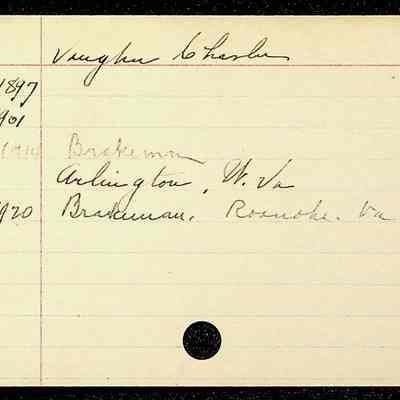 Vaughn Charles
1897
901
1914 Brakeman
Arlington, W. Va
920 Brakeman. Roanoke. Va